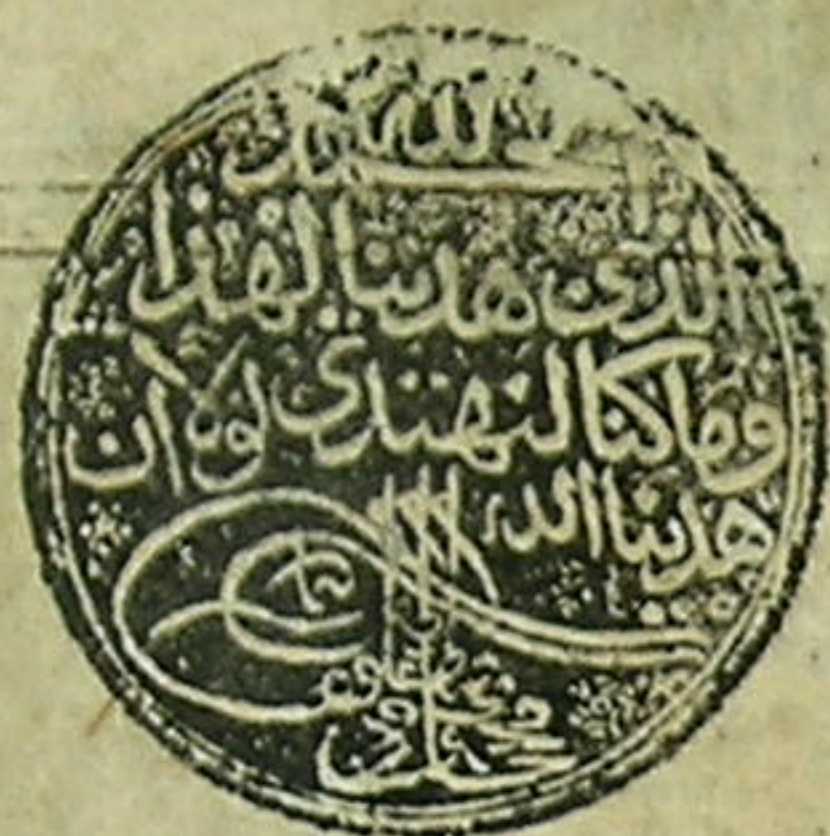 الحمد لله
الذي هدينا لهذا
وما كنا لنهتدي لولا ان
هدينا الله